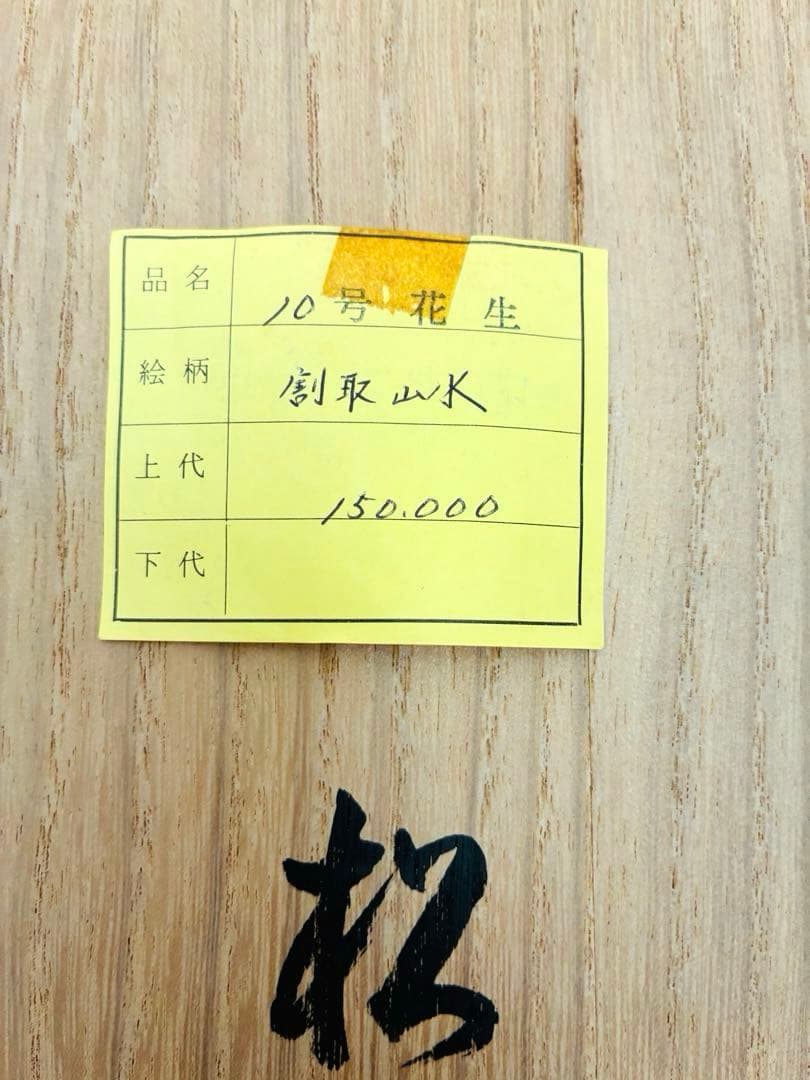 品名 10号 花生
絵柄 割取山水
上代 150.000
下代
松